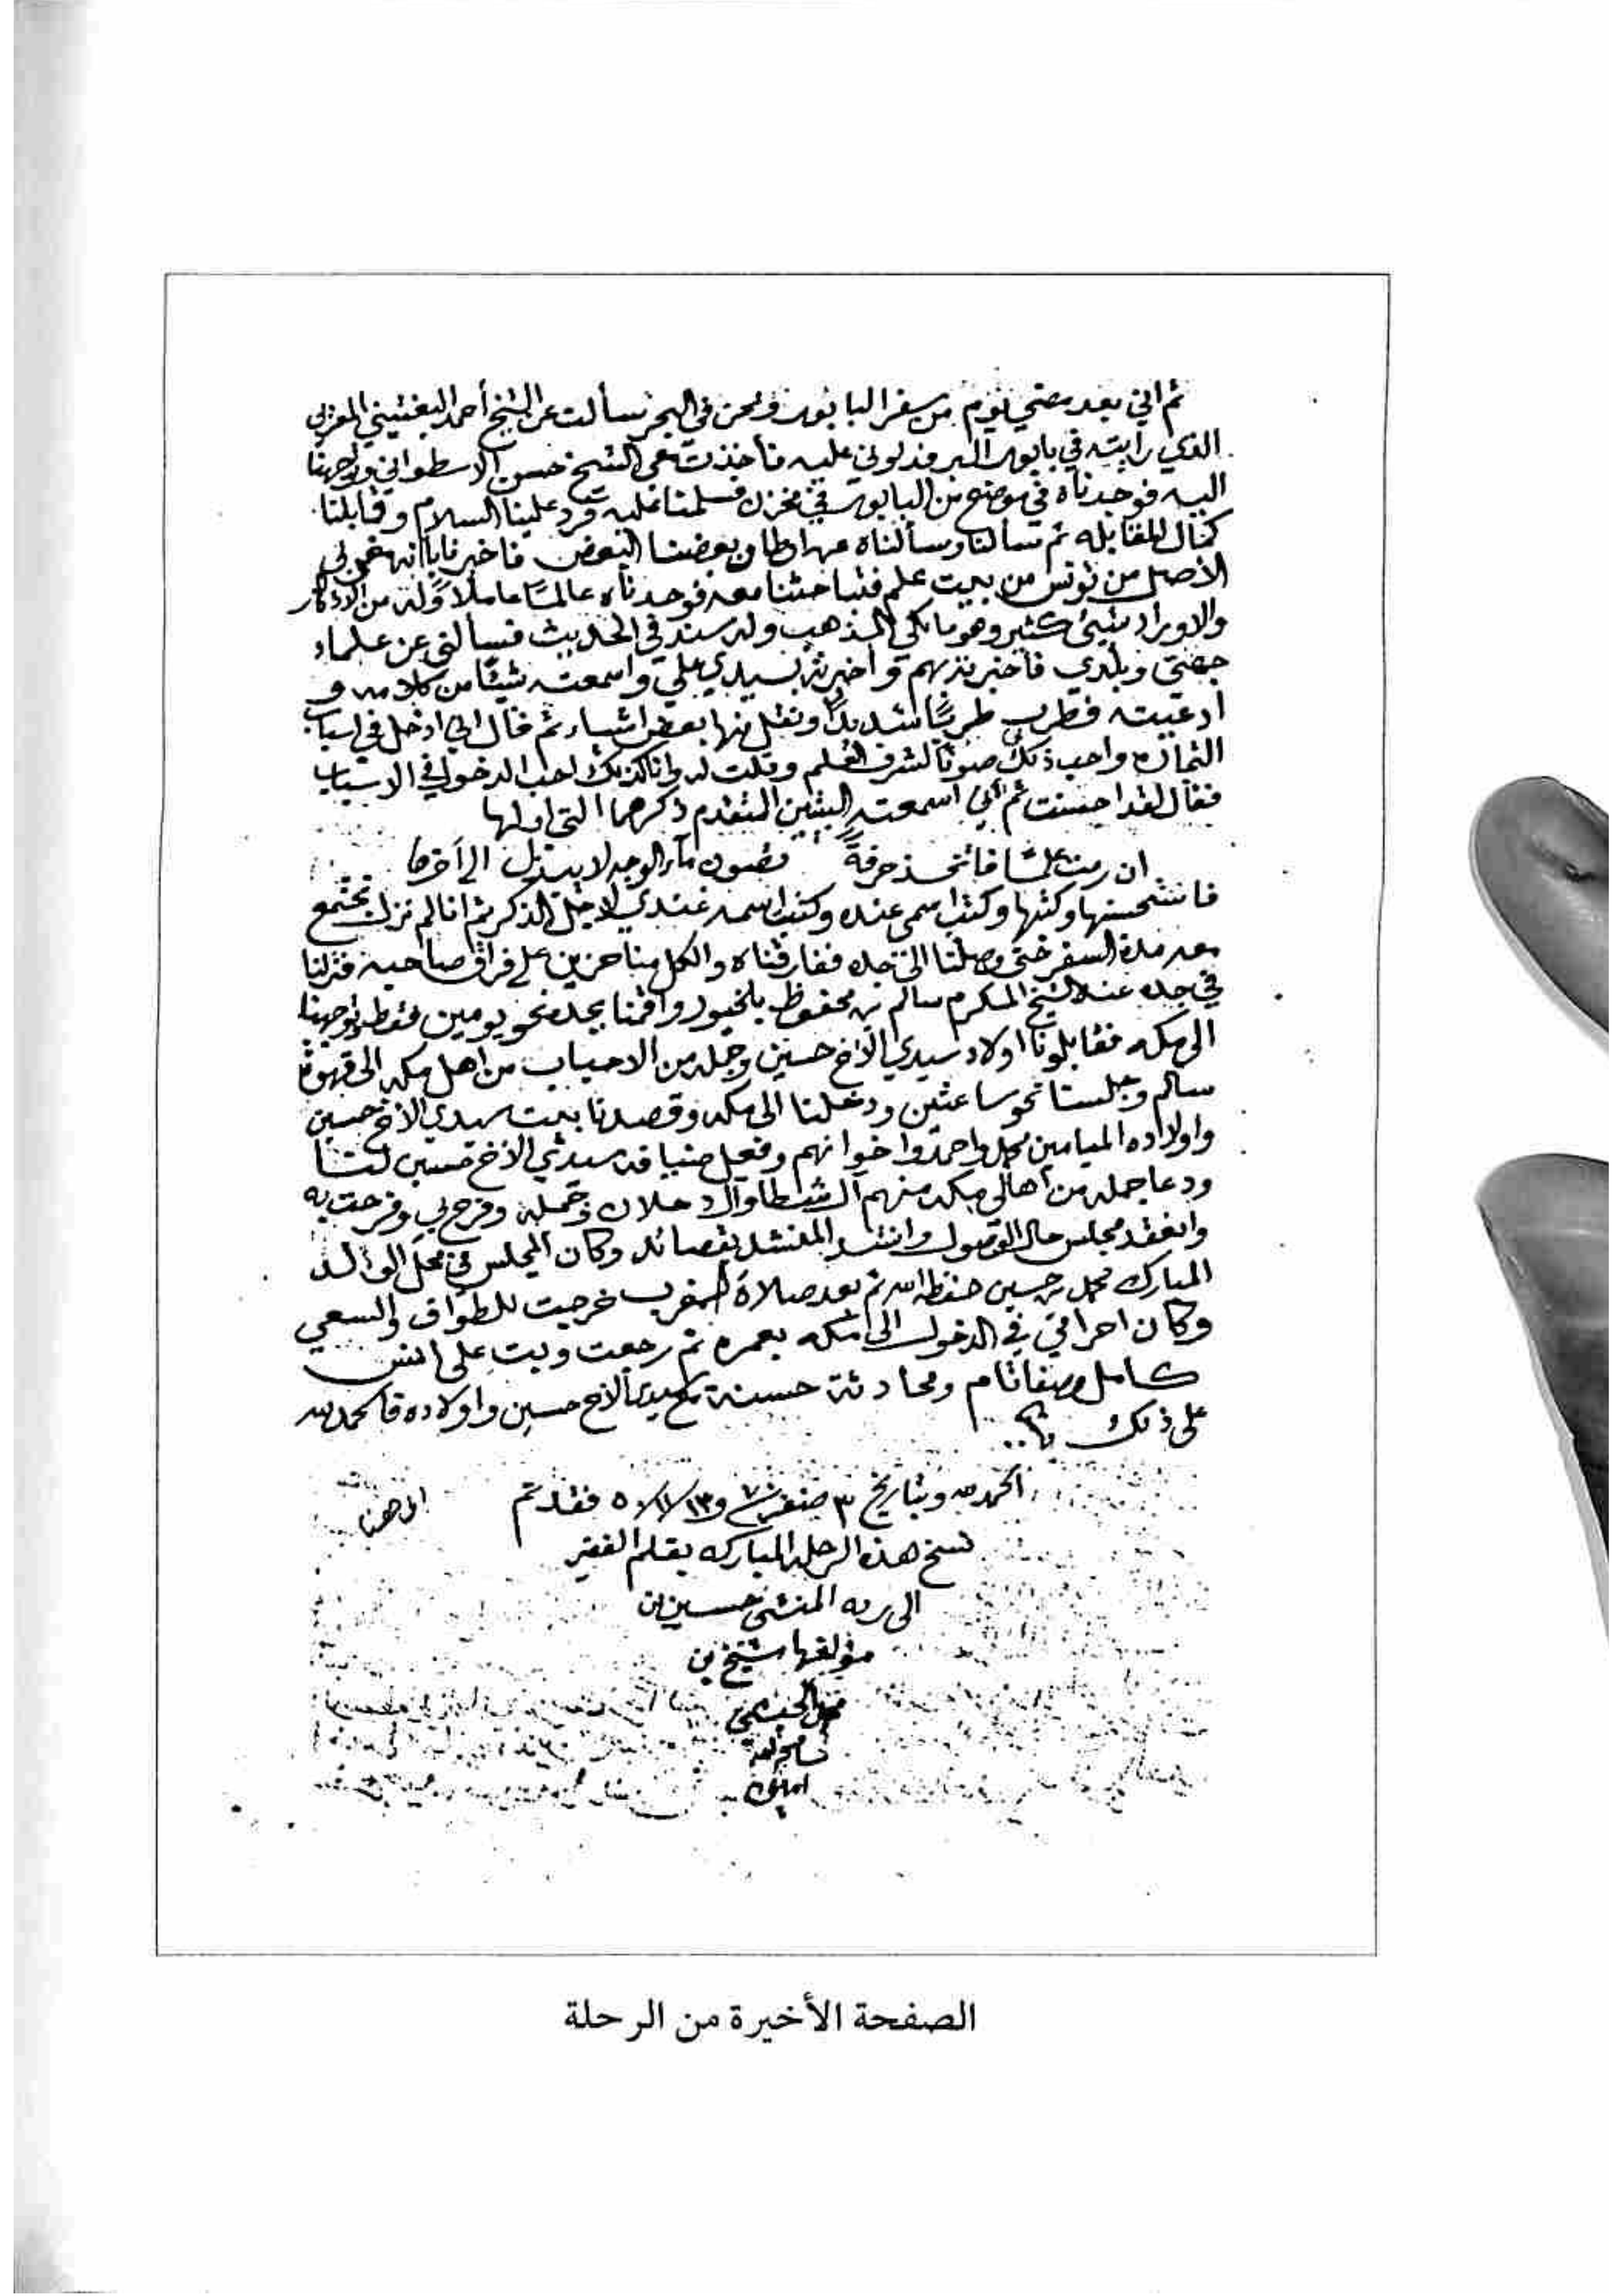 ثم اني بعد مضي يوم من سفر البابور ونحن في البحر سألت عن الشيخ أحمد المغربي
الذي رايته في بابور البر فدلوني عليه فأخذت معي الشيخ حسن الاسطواني وتوجهنا
اليه فوجدناه في موضع من البابور في مخزن فسلمنا عليه فرد علينا السلام وقابلنا
كمال المقابله ثم سألنا وسألناه عن اوطان بعضنا البعض فاخبرنا بانه مغربي
الأصل من تونس من بيت علم فتباحثنا معه فوجدناه عالمًا عاملًا وله من الاذكار
والاوراد شيئ كثير وهو مالكي المذهب وله سند في الحديث فسألني عن علماء
جهتي وبلدي فأخبرته بهم وأخبرته بسيدي علي واسمعته شيئًا من كلامه و
ادعيته فطرب طربًا شديدًا ونقل منها بعض اشياء ثم قال اني ادخل في اسباب
التجاره واحب ذلك صونًا لشرف العلم وقلت له وانا كذلك احب الدخول في الاسباب
فقال لقد احسنت ثم أني اسمعته البيتين المتقدم ذكرهما التي اولها
ان رمت علمًا فاتخذ حرفةً تصون ماء الوجه لا يبتذل الى آخرها
فاستحسنها وكتبها وكتب اسمي عنده وكتبت اسمه عندي لاجل الذكر ثم انا لم نزل نجتمع
معه مدة السفر حتى وصلنا الى جده ففارقناه والكل منا حزين على فراق صاحبه فنزلنا
في جده عند الشيخ المكرم سالم بن محفوظ باخيور واقمنا بجده نحو يومين فقط وتوجهنا
الى مكه فقابلونا اولاد سيدي الأخ حسين وجمله من الاحباب من اهل مكه الى قهوة
سالم وجلسنا نحو ساعتين ودخلنا الى مكه وقصدنا بيت سيدي الأخ حسين
واولاده الميامين محمد واحمد واخوانهم وفعل ضيافه سيدي الأخ حسين لنا
ودعا جمله من أهالي مكه منهم آل شطا وآل دحلان وجمله وفرح بي وفرحت به
وانعقد مجلس حال الوصول وانشد المنشد بقصائد وكان المجلس في محل الوالد
المبارك محمد بن حسين حفظه الله ثم بعد صلاة المغرب خرجت للطواف والسعي
وكان احرامي في الدخول الى مكه بعمره ثم رجعت وبت على انس
كامل وصفا تام ومحادثة حسنة مع سيدي الأخ حسين واولاده فالحمد لله
على ذلك
الحمد لله وبتاريخ ٣ صفر ٧٠ و ١٣/١١/٥٠ فقد تم الى هنا
نسخ هذه الرحله المباركه بقلم الفقير
الى ربه المنشي حسين بن
مؤلفها شيخ بن
محمد الحبشي
سامحه الله
امين
الصفحة الأخيرة من الرحلة